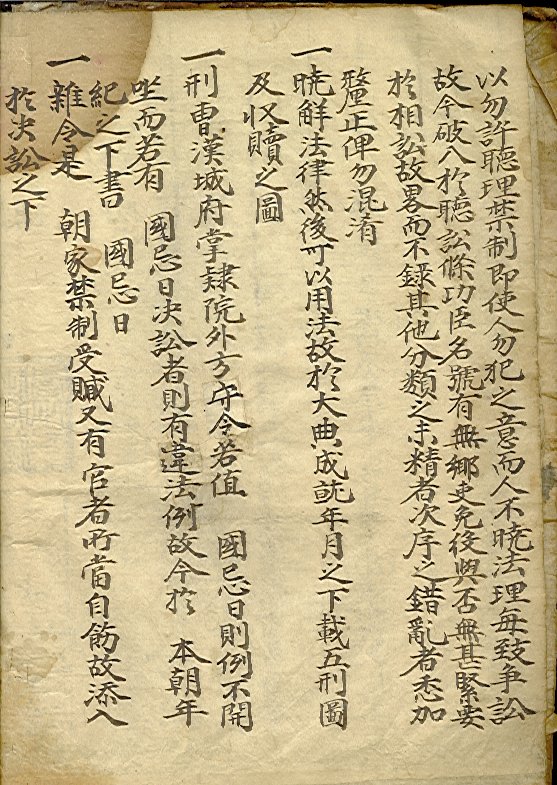 以勿許聽理禁制即使人勿犯之意而人不曉法理每致爭訟
故今破八於聽訟條功臣名號有無鄕吏免役與否無甚緊要
於相訟故畧而不錄其他分類之未精者次序之錯亂者悉加
釐正俾勿混淆
一曉解法律然後可以用法故於大典成就年月之下載五刑圖
及收贖之圖
一刑曹漢城府掌隸院外方守令若值 國忌日則例不開
坐而若有 國忌日決訟者則有違法例故今於 本朝年
紀之下書 國忌日
一雜令是 朝家禁制受贓又有官者所當自飭故添入
於决訟之下